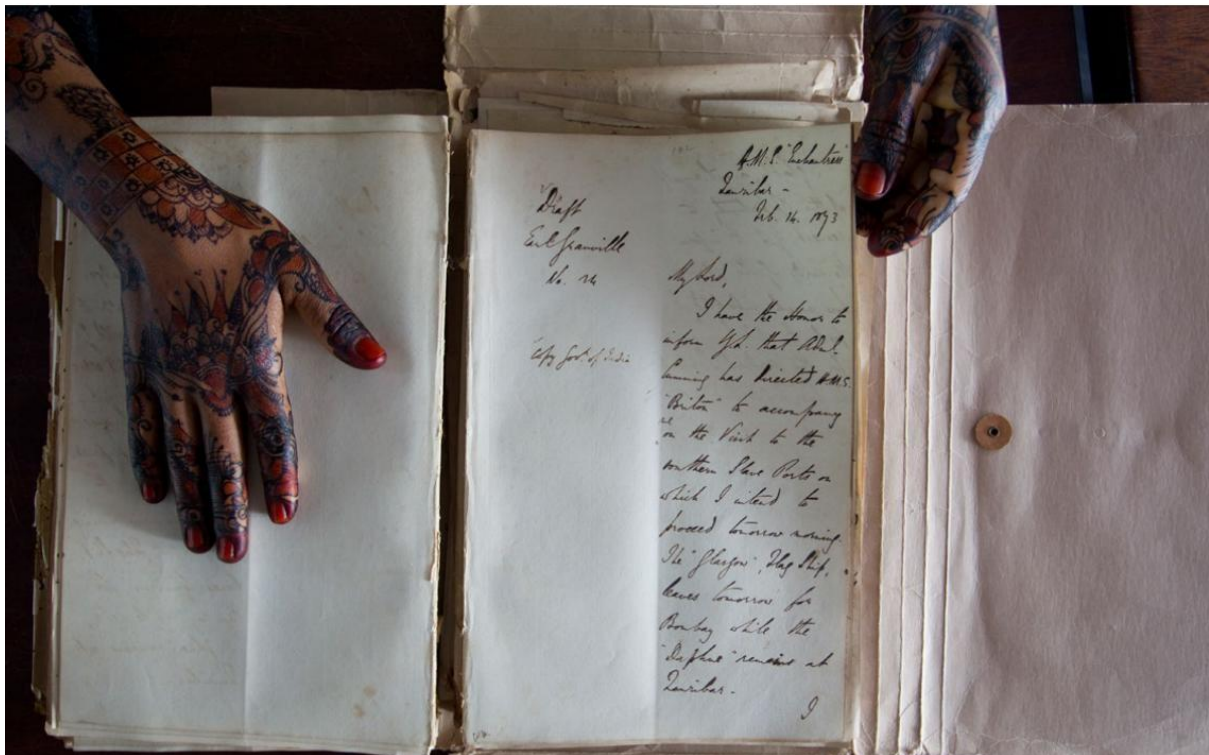 H.M.S. "Enchantress"
Zanzibar -
Feb. 14. 1873
Draft
Earl Granville
No. 24
Copy Govt. of India
My Lord,
I have the Honor to
inform Y.L. that Adml.
Cumming has Directed H.M.S.
"Briton" to accompany
me
on the Visit to the
southern Slave Ports on
which I intend to
proceed tomorrow morning.
The "Glasgow", Flag Ship,
leaves tomorrow for
Bombay while the
"Daphne" remains at
Zanzibar -
I